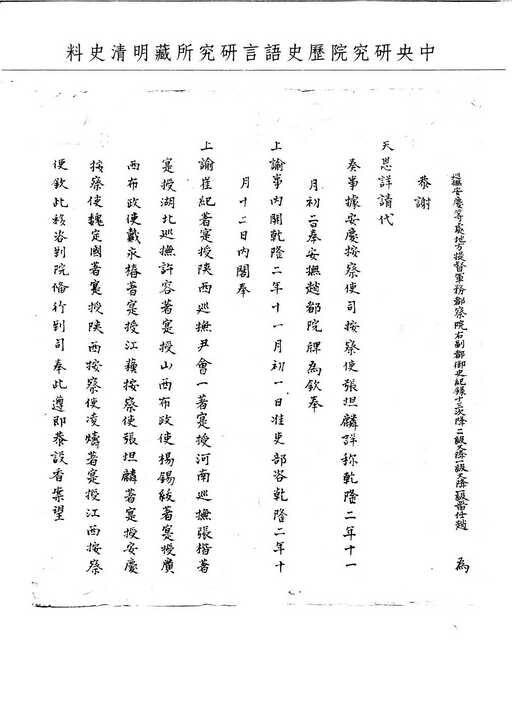 中央研究院歷史語言研究所藏明清史料
巡撫安慶等處地方提督軍務都察院右副都御史紀錄十三次降二級又降一級又降一級留任趙 為
恭謝
天恩詳請代
奏事據安慶按察使司按察使張坦麟詳称乾隆二年十一
月初二日奉安撫趙都院牌為欽奉
上諭事內開乾隆二年十一月初一日准吏部咨乾隆二年十
月十二日內閣奉
上諭崔紀著寔授陝西巡撫尹會一著寔授河南巡撫張楷著
寔授湖北巡撫許容著寔授山西布政使楊錫紱著寔授廣
西布政使戴永椿著寔授江蘓按察使張坦麟著寔授安慶
按察使魏定國著寔授陝西按察使凌燽著寔授江西按察
使欽此移咨到院俻行到司奉此遵即恭設香案望